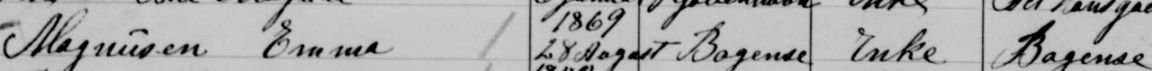 1869
Magnusen Emma 28 August Bogense Enke Bogense